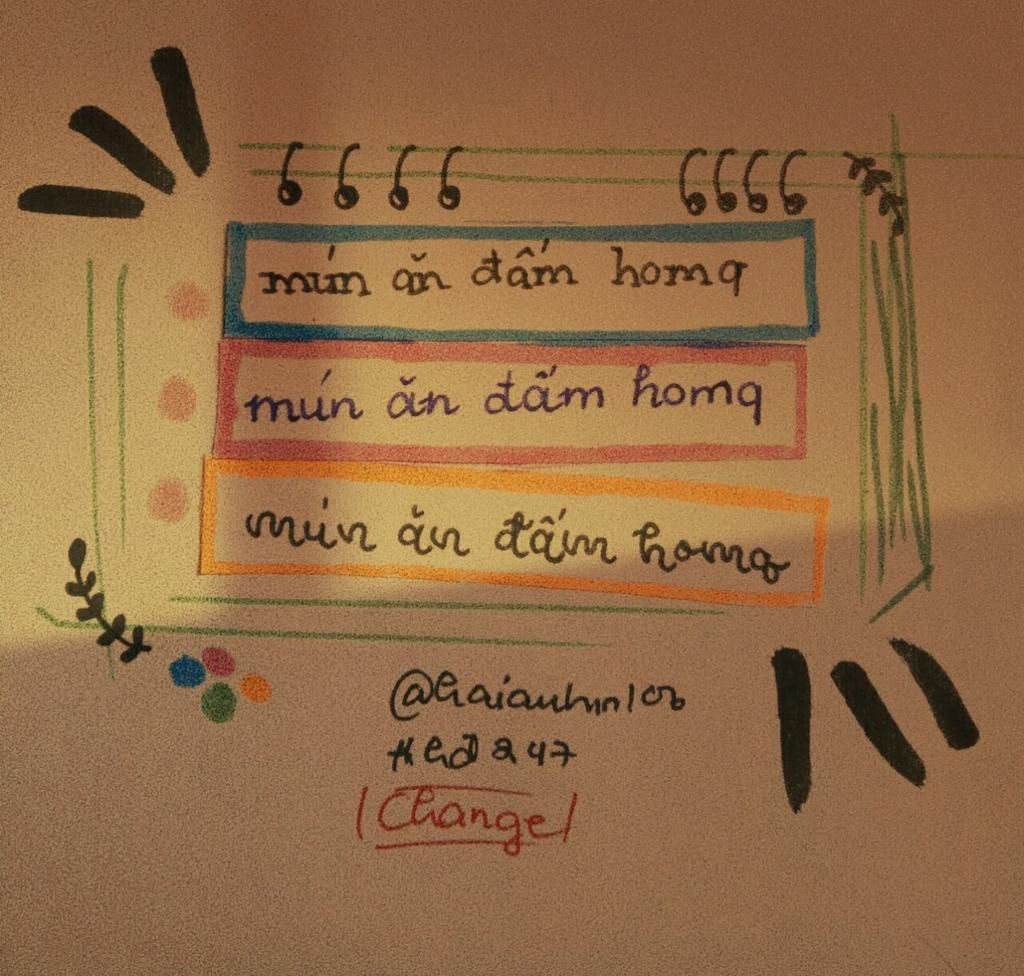 mún ăn đấm homq
mún ăn đấm homq
mún ăn đấm homq
|Change|